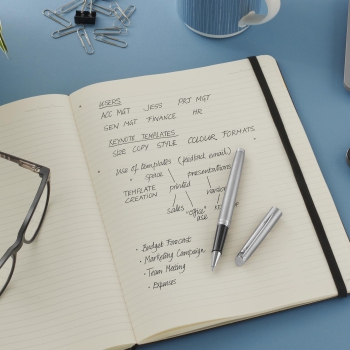 USERS
ACC MGT JESS PRJ MGT
GEN MGT FINANCE HR
KEYNOTE TEMPLATES
SIDE COPY STYLE COLOUR FORMATS
Use of templates (feedback email)
space presentations
TEMPLATE printed
CREATION
sales "office"
use
• Budget Forecast
• Marketing Campaign
• Team Meeting
• Expenses